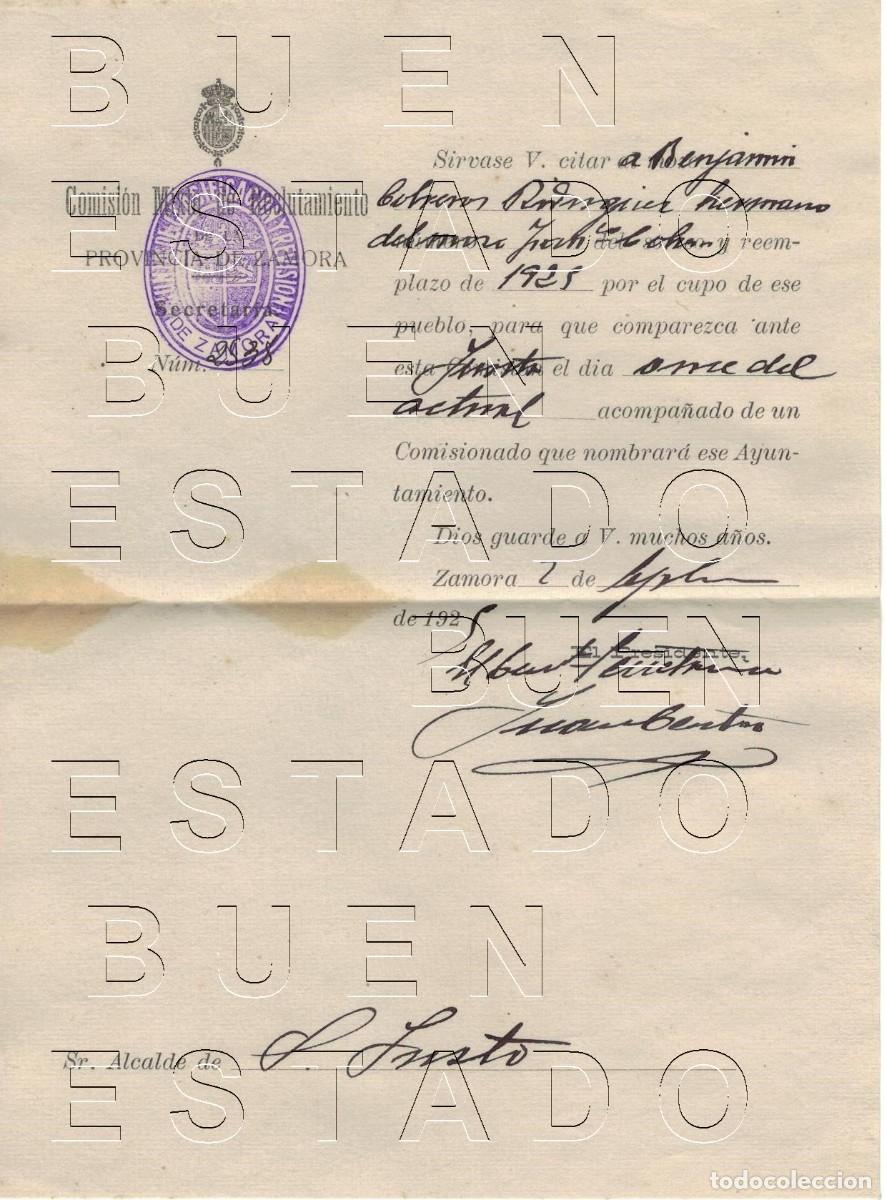 BUEN
ESTADO
BUEN
ESTADO
BUEN
ESTADO
BUEN
ESTADO
Comisión Mixta de Reclutamiento
DE LA
PROVINCIA DE ZAMORA
Secretaría.
Núm. 2538
DE ZAMORA
Sirvase V. citar a Benjamin
Rodriguez hermano
del mozo y reem-
plazo de 1925 por el cupo de ese
pueblo, para que comparezca ante
esta Junta el día once del
actual acompañado de un
Comisionado que nombrará ese Ayun-
tamiento.
Dios guarde a V. muchos años.
Zamora 2 de
de 1925
El Presidente,
Sr. Alcalde de S. Justo
todocoleccion